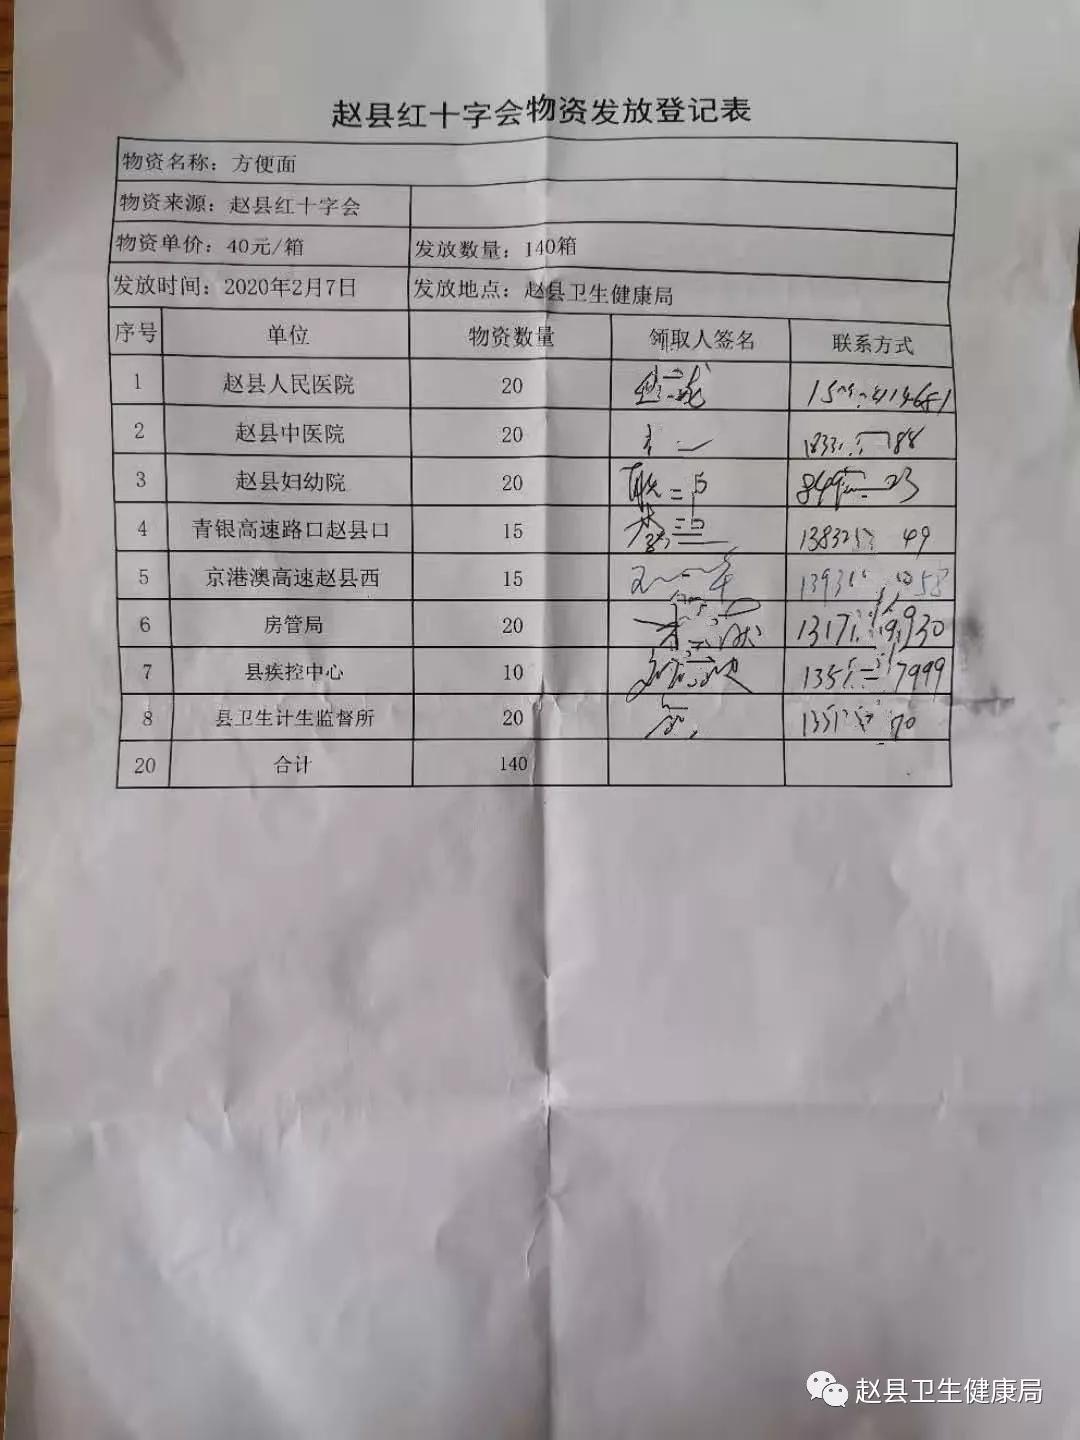 赵县红十字会物资发放登记表
物资名称：方便面
物资来源：赵县红十字会
物资单价：40元/箱 发放数量：140箱
发放时间：2020年2月7日 发放地点：赵县卫生健康局
序号 单位 物资数量 领取人签名 联系方式
1 赵县人民医院 20
2 赵县中医院 20
3 赵县妇幼院 20
4 青银高速路口赵县口 15
5 京港澳高速赵县西 15
6 房管局 20
7 县疾控中心 10
8 县卫生计生监督所 20
20 合计 140
赵县卫生健康局